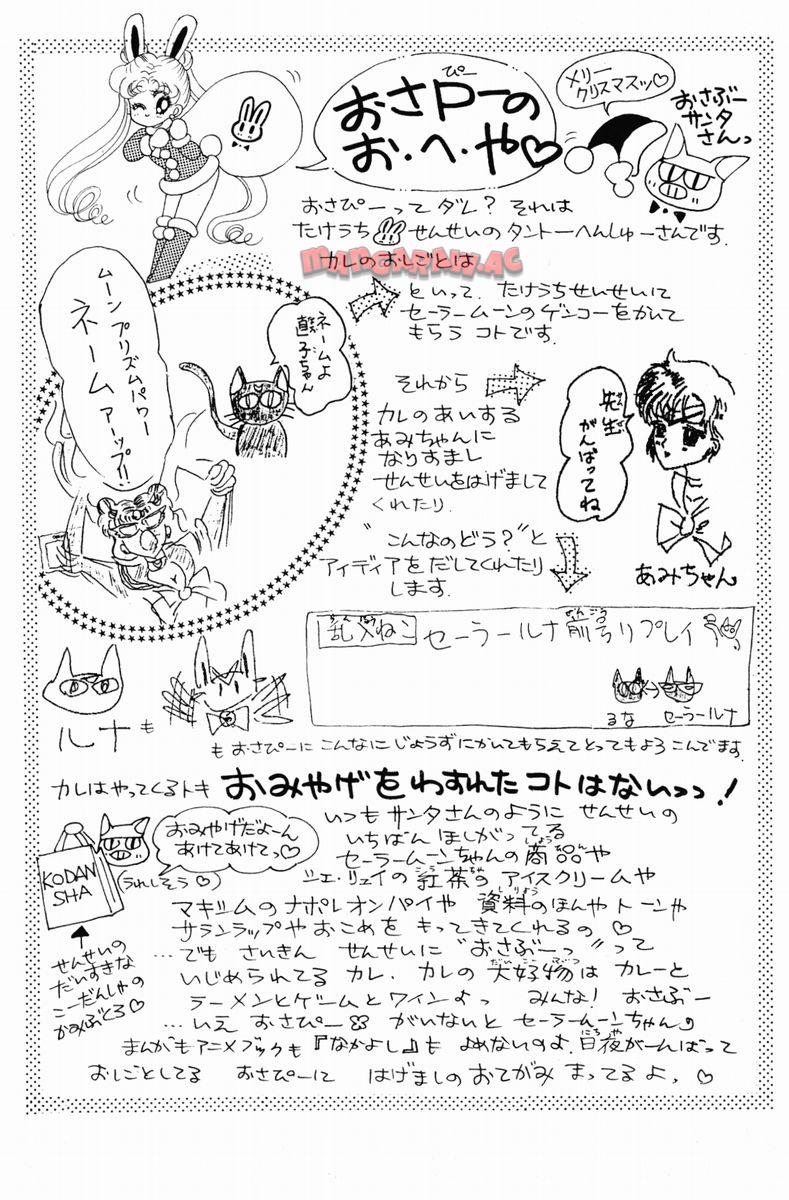 おさPーの
ぴー
お・へ・や♡
メリー
クリスマスッ♡
おさぶー
サンタ
さんっ
おさぴーってダレ？それは
たけうち せんせいのタントーへんしゅーさんです.
カレのおしごとは
ムーンプリズムパワー
ネーム
アーップ!!
ネームよ
直子ちゃん
といって. たけうちせいせいに
セーラームーンのゲンコーをかいて
もらうコトです.
それから
カレのあいする
あみちゃんに
なりすまし
せんせいをはげまして
くれたり.
先生
がんばってね
あみちゃん
"こんなのどう？"と
アイディアをだしてくれたり
します.
乱入ねこ セーラールナ前号リプレイ
るな
セーラールナ
ルナも
もおさぴーにこんなにじょうずにかいてもらえてとってもよろこんでます.
カレはやってくるトキ おみやげをわすれたコトはないっっ！
おみやげだよーん
あけてあけてっ♡
(うれしそう♡)
KODAN
SHA
せんせいの
だいすきな
こーだんしゃの
かみぶくろ♡
いつもサンタさんのように せんせいの
いちばん ほしがってる
セーラームーンちゃんの商品や
ジェ・リュイの紅茶のアイスクリームや
マキシムのナポレオンパイや 資料のほんや トーンや
サランラップやおこめを もってきてくれるの ♡
…でも さいきん せんせいに "おさぶーっ" って
いじめられてるカレ. カレの大好物はカレーと
ラーメンとゲームとワインよっ みんな！ おさぶー
…いえ おさぴー がいないと セーラームーンちゃん
まんがもアニメブックも『なかよし』も よめないのよ. 日夜がーんばって
おしごとしてる おさぴーに はげましのおてがみ まってるよっ ♡